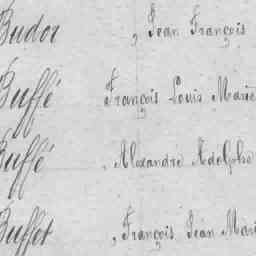 Budor , Jean François
Buffé François Louis Marie
Buffé , Alexandre Adolphe
Buffet , François Jean Marie